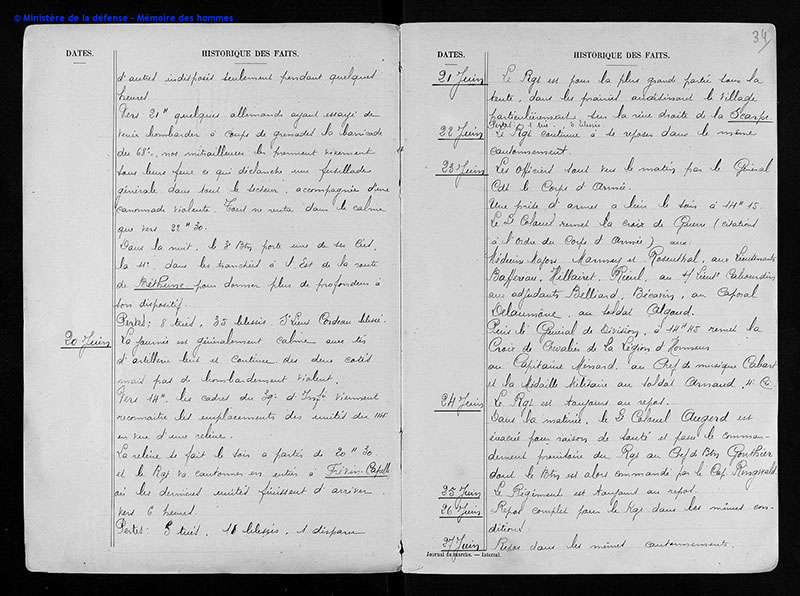 © Ministère de la défense - Mémoire des hommes
DATES. HISTORIQUE DES FAITS.
d'autres indisposés seulement pendant quelques
heures.
Vers 21h quelques allemands ayant essayé de
venir bombarder à coups de grenades la barricade
du 68e, nos mitrailleuses les prennent vivement
sous leurs feux ce qui déclanche une fusillade
générale dans tout le secteur, accompagnée d'une
canonnade violente. Tout ne rentre dans le calme
que vers 22h30.
Dans la nuit, le Btn porte une de ses Cies,
la 4e, dans les tranchées à l'Est de la route
de Béthune pour donner plus de profondeur à
son dispositif.
Pertes: 8 tués, 35 blessés, S/Lieut Cordeau blessé.
20 Juin La journée est généralement calme avec tir
d'artillerie lent et continu des deux cotés
mais pas de bombardement violent.
Vers 14h, les cadres du d'Infie viennent
reconnaître les emplacements des unités du 114
en vue d'une relève.
La relève se fait le soir à partir de 20h30
et le Rgt va cantonner en entier à Frévin-Capelle
où les dernières unités finissent d'arriver
vers 6 heures.
Pertes: 5 tués, 11 blessés, 1 disparu
34
DATES. HISTORIQUE DES FAITS.
21 Juin Le Rgt est pour la plus grande partie sous la
tente, dans les prairies avoisinant le village
particulièrement sur la rive droite de la Scarpe.
Pertes: 1 tué blessés
22 Juin Le Rgt continue à se reposer dans le même
cantonnement.
23 Juin Les officiers sont vus le matin par le Général
Cdt le Corps d'Armée.
Une prise d'armes a lieu le soir à 14h15.
Le Lt Colonel remet la croix de Guerre (citations
à l'Ordre du Corps d'Armée) aux
Médecins Majors Marmey et Rosenthal, aux Lieutenants
Baffereau, Hillairet, Rieul, au S/Lieut Cahourdin
aux adjudants Belliard, Bécavin, au Caporal
Delaumône, au soldat Algaud.
Puis le Général de Division, à 14h45 remet la
Croix de Chevalier de la Légion d'Honneur
au Capitaine Menard, au Chef de musique Cabart
et la Médaille Militaire au soldat Arnaud, 4e Cie.
24 Juin Le Rgt est toujours au repos.
Dans la matinée, le Lt Colonel Augerd est
évacué pour raison de santé et passe le comman-
dement provisoire du Rgt au Chef de Btn Gonthier
dont le Btn est alors commandé par le Cap. Ringwald.
25 Juin Le Régiment est toujours au repos.
26 Juin Repos complet pour le Rgt dans les mêmes con-
ditions.
27 Juin Repos dans les mêmes cantonnements.
Journal de marche. — Intercal.